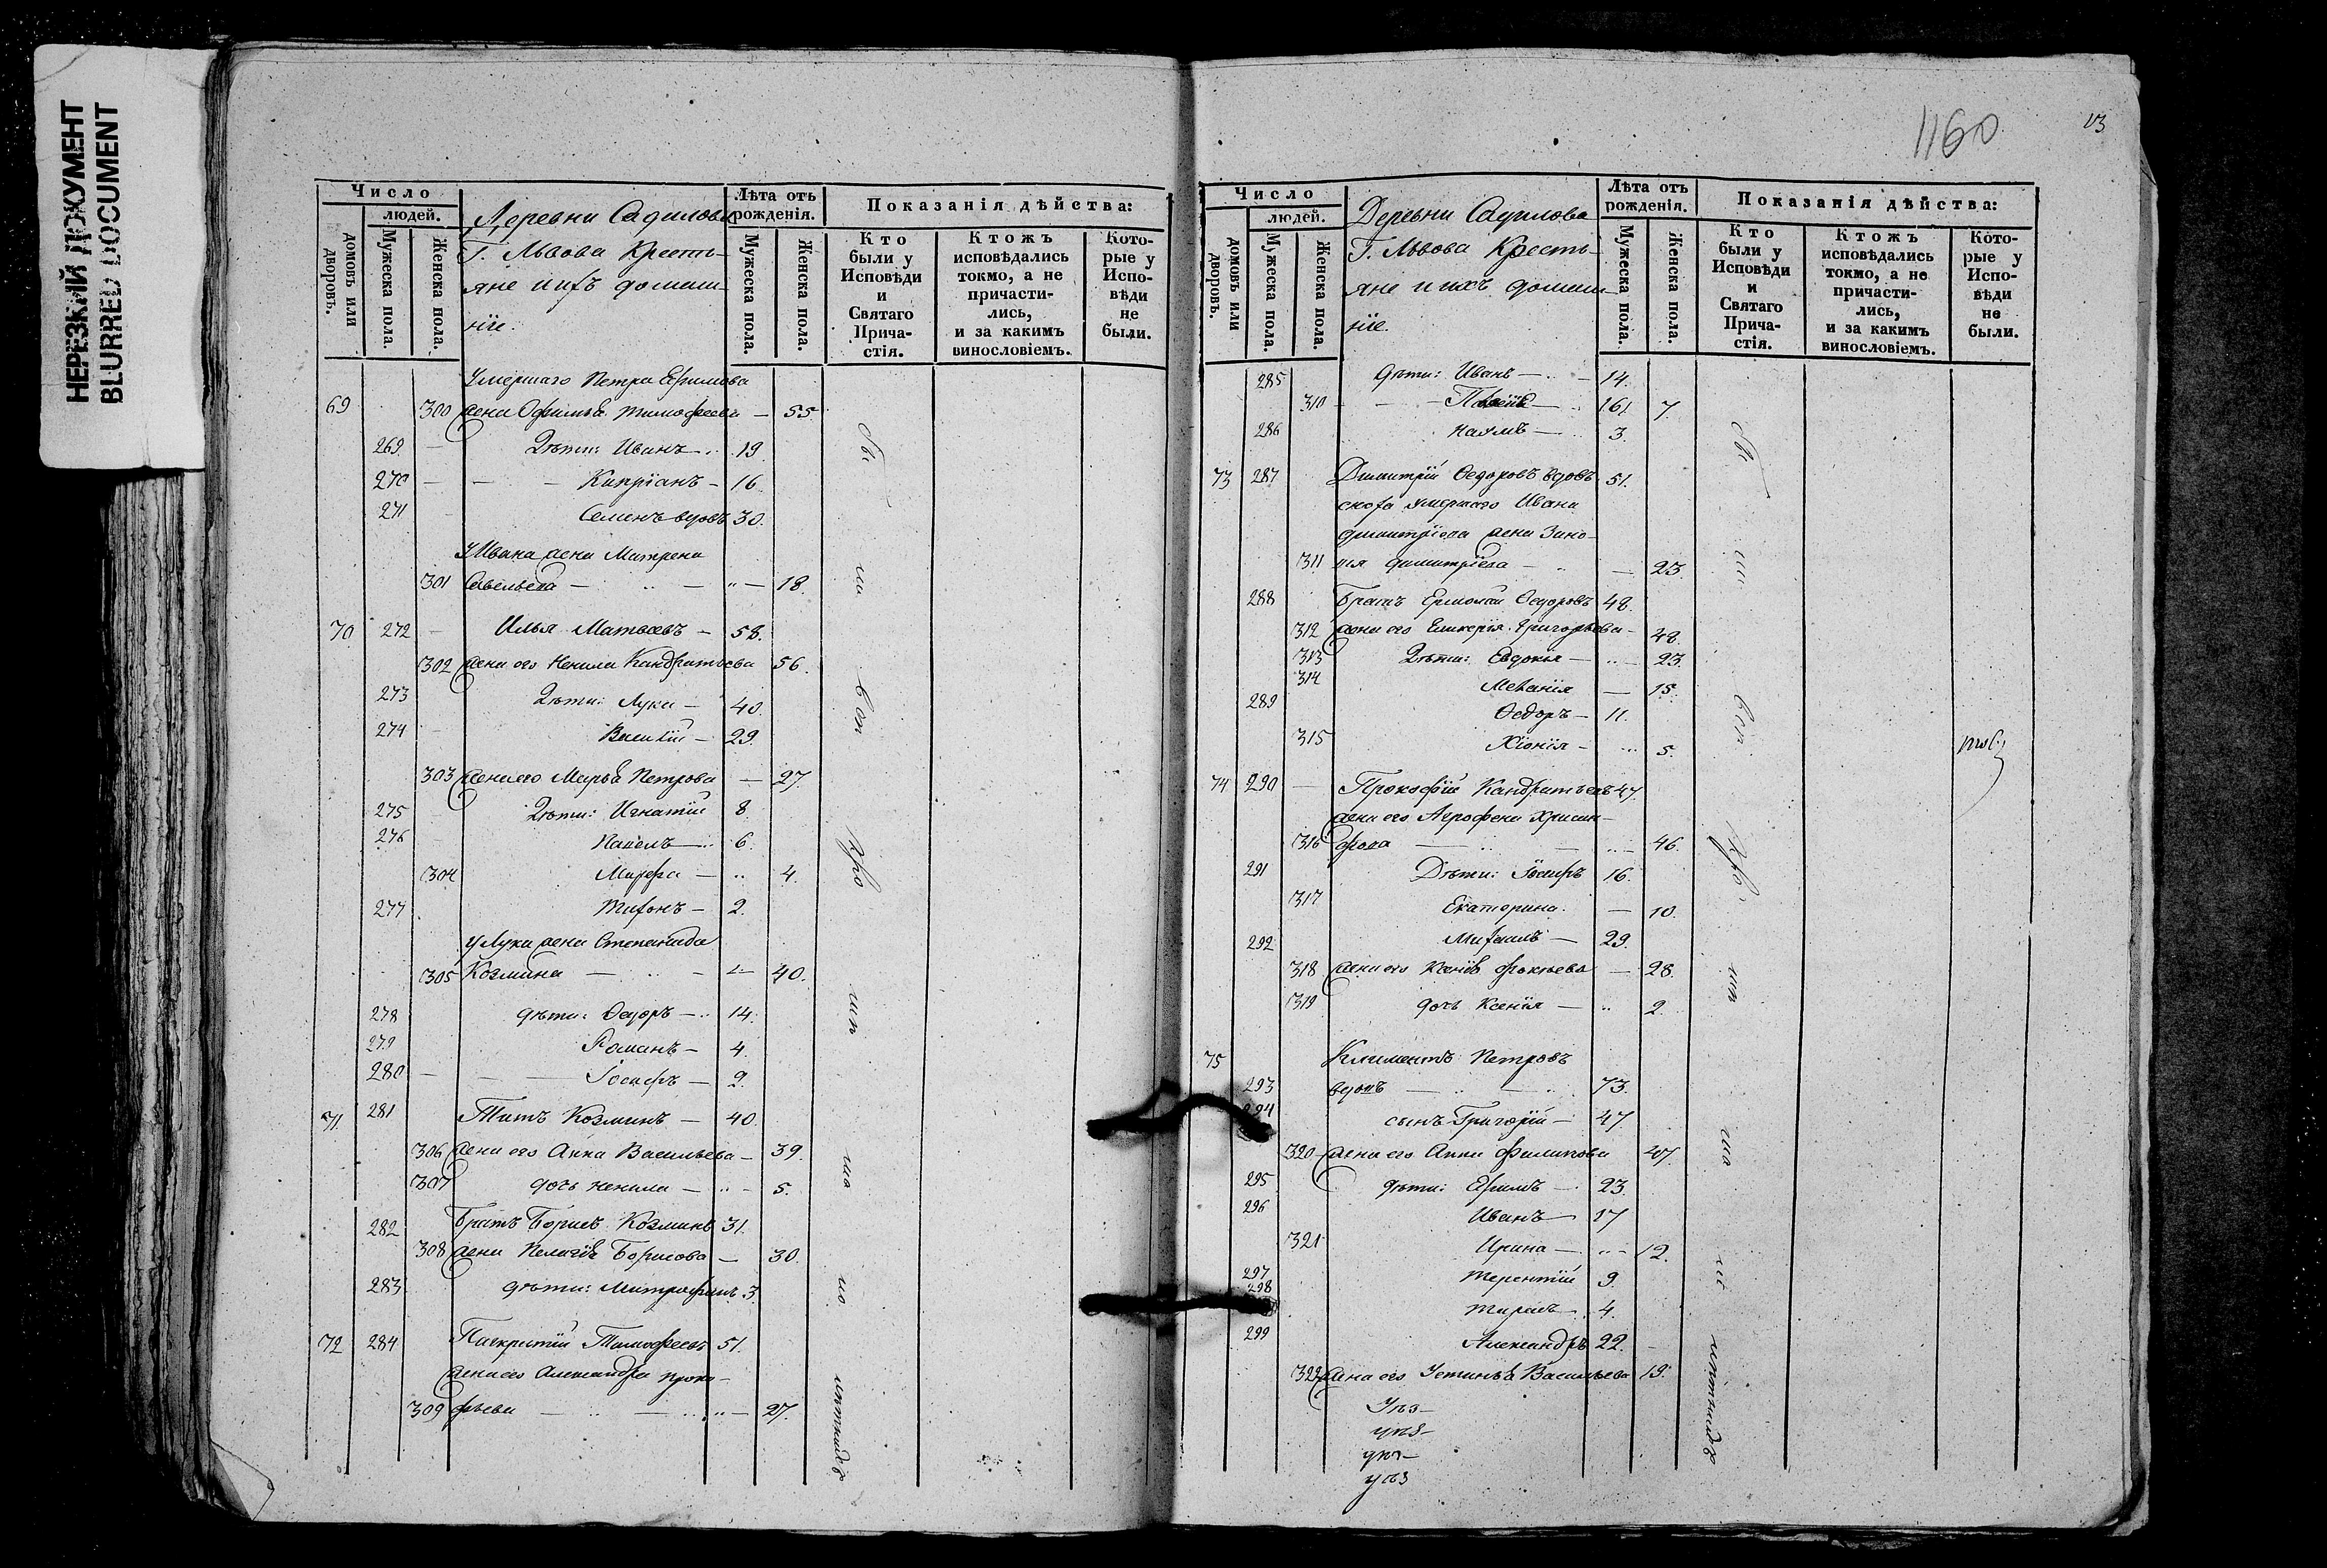 НЕРЕЗКИЙ ДОКУМЕНТ
BLURRED DOCUMENT
Число
людей.
домовъ или дворовъ.
Мужеска пола.
Женска пола.
Деревни Садилова
Г. Львова Кресть-
яне и ихъ домаш-
ніе.
Лѣта отъ рожденія.
Мужеска пола.
Женска пола.
Показанія дѣйства:
Кто были у Исповѣди и Святаго Прича-стія.
Ктожъ исповѣдались токмо, а не причасти-лись, и за какимъ винословіемъ.
Кото-рые у Испо-вѣди не были.
Умершаго Петра Ефимова
69 300 жена Офимья Тимофеева — 55.
269 Дѣти: Иванъ 19
270 Кипріанъ — 16
271 Семенъ вдовъ 30.
У Ивана жена Матрена
301 Савельева — 18.
70 272 Илья Матвеевъ — 58.
302 жена его Ненила Кандратьева 56.
273 Дѣти: Лука — 40.
274 Василій — 29.
303 жена его Марья Петрова — 27.
275 Дѣти: Игнатій 8.
276 Павелъ 6.
304 Марфа — 4.
277 Тихонъ — 2.
у Луки жена Степанида
305 Козмина — 40.
278 дѣти: Ѳедоръ 14.
279 Романъ — 4.
280 Іосифъ — 2.
71. 281 Титъ Козминъ — 40.
306 жена его Анна Васильева — 39.
307 дочь Ненила — 5.
282 Братъ Борисъ Козминъ 31.
308 жена Пелагія Борисова — 30.
283 дѣти: Митрофанъ 3.
72 284 Панкратій Тимофеевъ 51.
жена его Александра Проко-
309 фьева — 27.
1160
Число
людей.
домовъ или дворовъ.
Мужеска пола.
Женска пола.
Деревни Садилова
Г. Львова Кресть-
яне и ихъ домаш-
ніе.
Лѣта отъ рожденія.
Мужеска пола.
Женска пола.
Показанія дѣйства:
Кто были у Исповѣди и Святаго Прича-стія.
Ктожъ исповѣдались токмо, а не причасти-лись, и за какимъ винословіемъ.
Кото-рые у Испо-вѣди не были.
285 Дѣти: Иванъ — 14.
310 7.
286 Наумъ — 3.
73 287 Димитрій Ѳедоровъ вдовъ 51.
умершаго Ивана
Димитріева жена Зино-
311 вія Димитріева — 23.
288 Братъ Ермолай Ѳедоровъ 48.
312 жена его Гликерія Григорьева — 48.
313 Дѣти: Евдокія — 23.
314 Меланія — 15.
289 Ѳедоръ — 11.
315 Хіонія — 5.
74 290 Прокофій Кандратьевъ 47.
жена его Агрофена Хрисан-
316 фова — 46.
291 Дѣти: Іосифъ 16.
317 Екатерина. — 10.
292 Михаилъ — 29.
318 жена его Ксенія Фокіева — 28.
319 дочь Ксенія — 2.
75 Климентъ Петровъ
293 вдовъ — 73.
294 сынъ Григорій — 47.
320 жена его Анна Филипова 47.
295 дѣти: Ефимъ — 23.
296 Иванъ 17
321 Ирина — 12.
297 Терентій 9.
298 Тарасъ 4.
299 Александръ 22.
322 жена его Устинья Васильева 19.